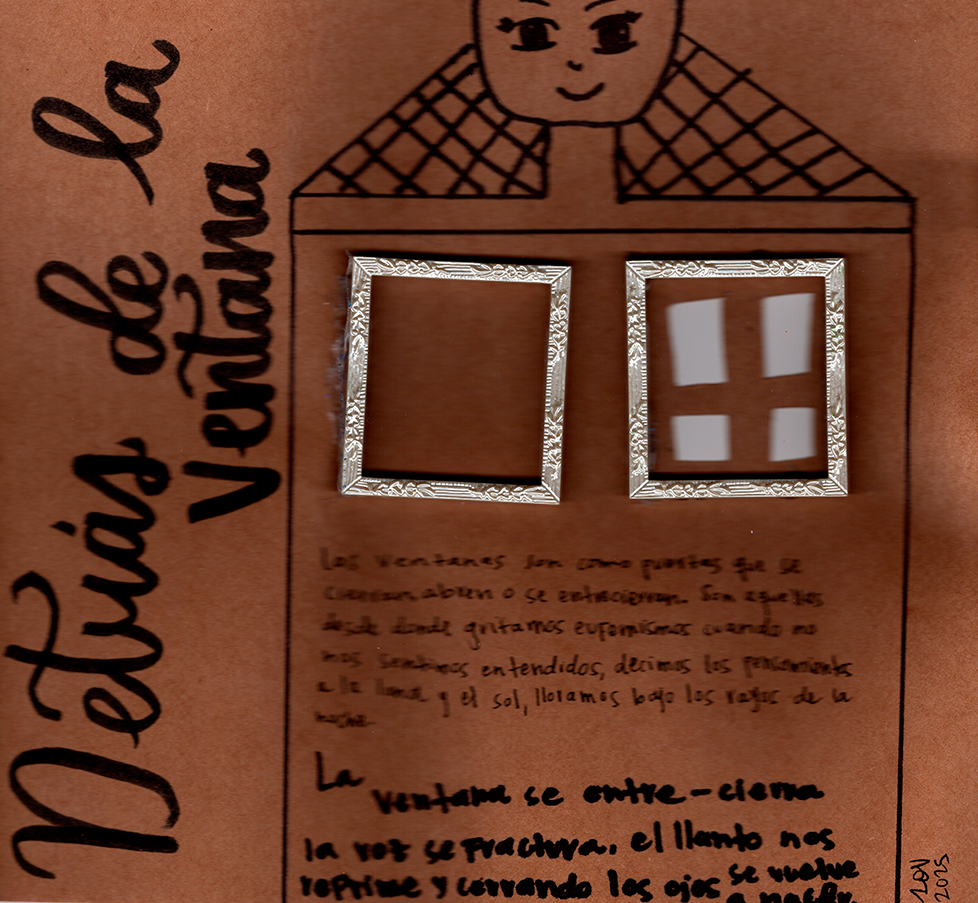 Detrás de la
ventana
Las ventanas son como puertas que se
cierran, abren o se entrecierran. Son aquellas
desde donde gritamos eufemismos cuando no
nos sentimos entendidos, decimos los pensamientos
a la luna y el sol, lloramos bajo los rayos de la
noche.
La
ventana se entre-cierra
la voz se fractura, el llanto nos
reprime y cerrando los ojos se vuelve
a nacer.
2015